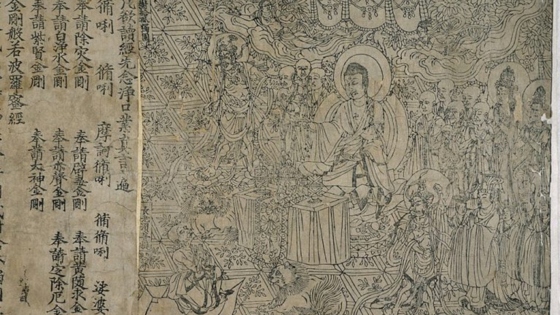 凡欲讀經先念淨口業真言一遍
脩唎 脩唎 摩訶脩唎 脩脩唎 娑婆
奉請除災金剛 奉請辟毒金剛 奉請黃隨求金
奉請白淨水金剛 奉請赤聲金剛 奉請定除厄金
奉請紫賢金剛 奉請大神金剛
金剛般若波羅蜜經